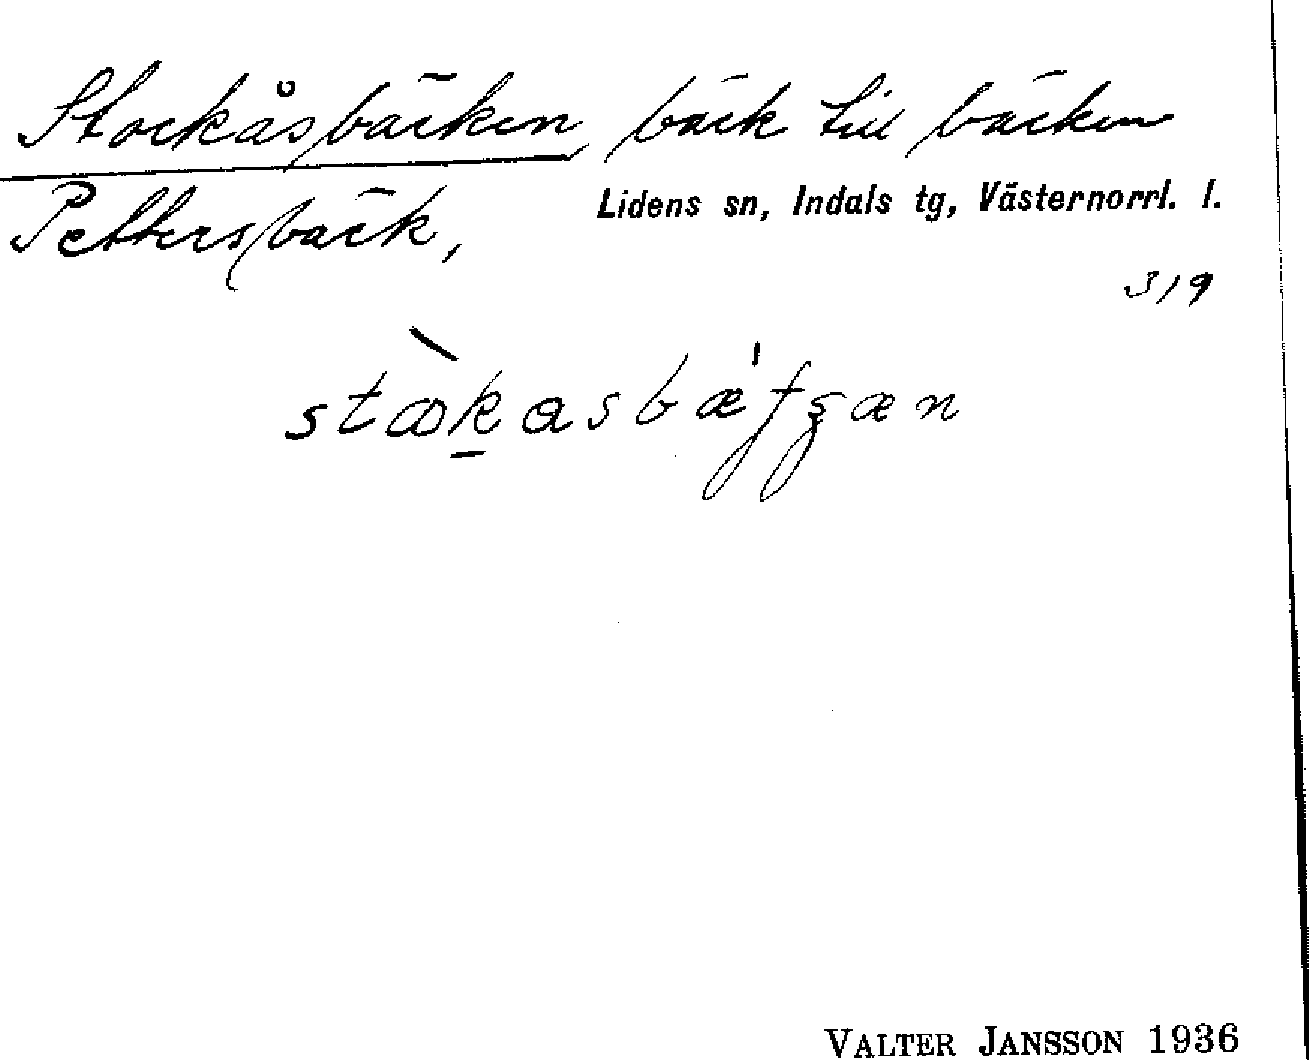 Stockåsbäcken, bäck till bäcken
Pettersbäck,
Lidens sn, Indals tg, Västernorrl. l.
319
VALTER JANSSON 1936